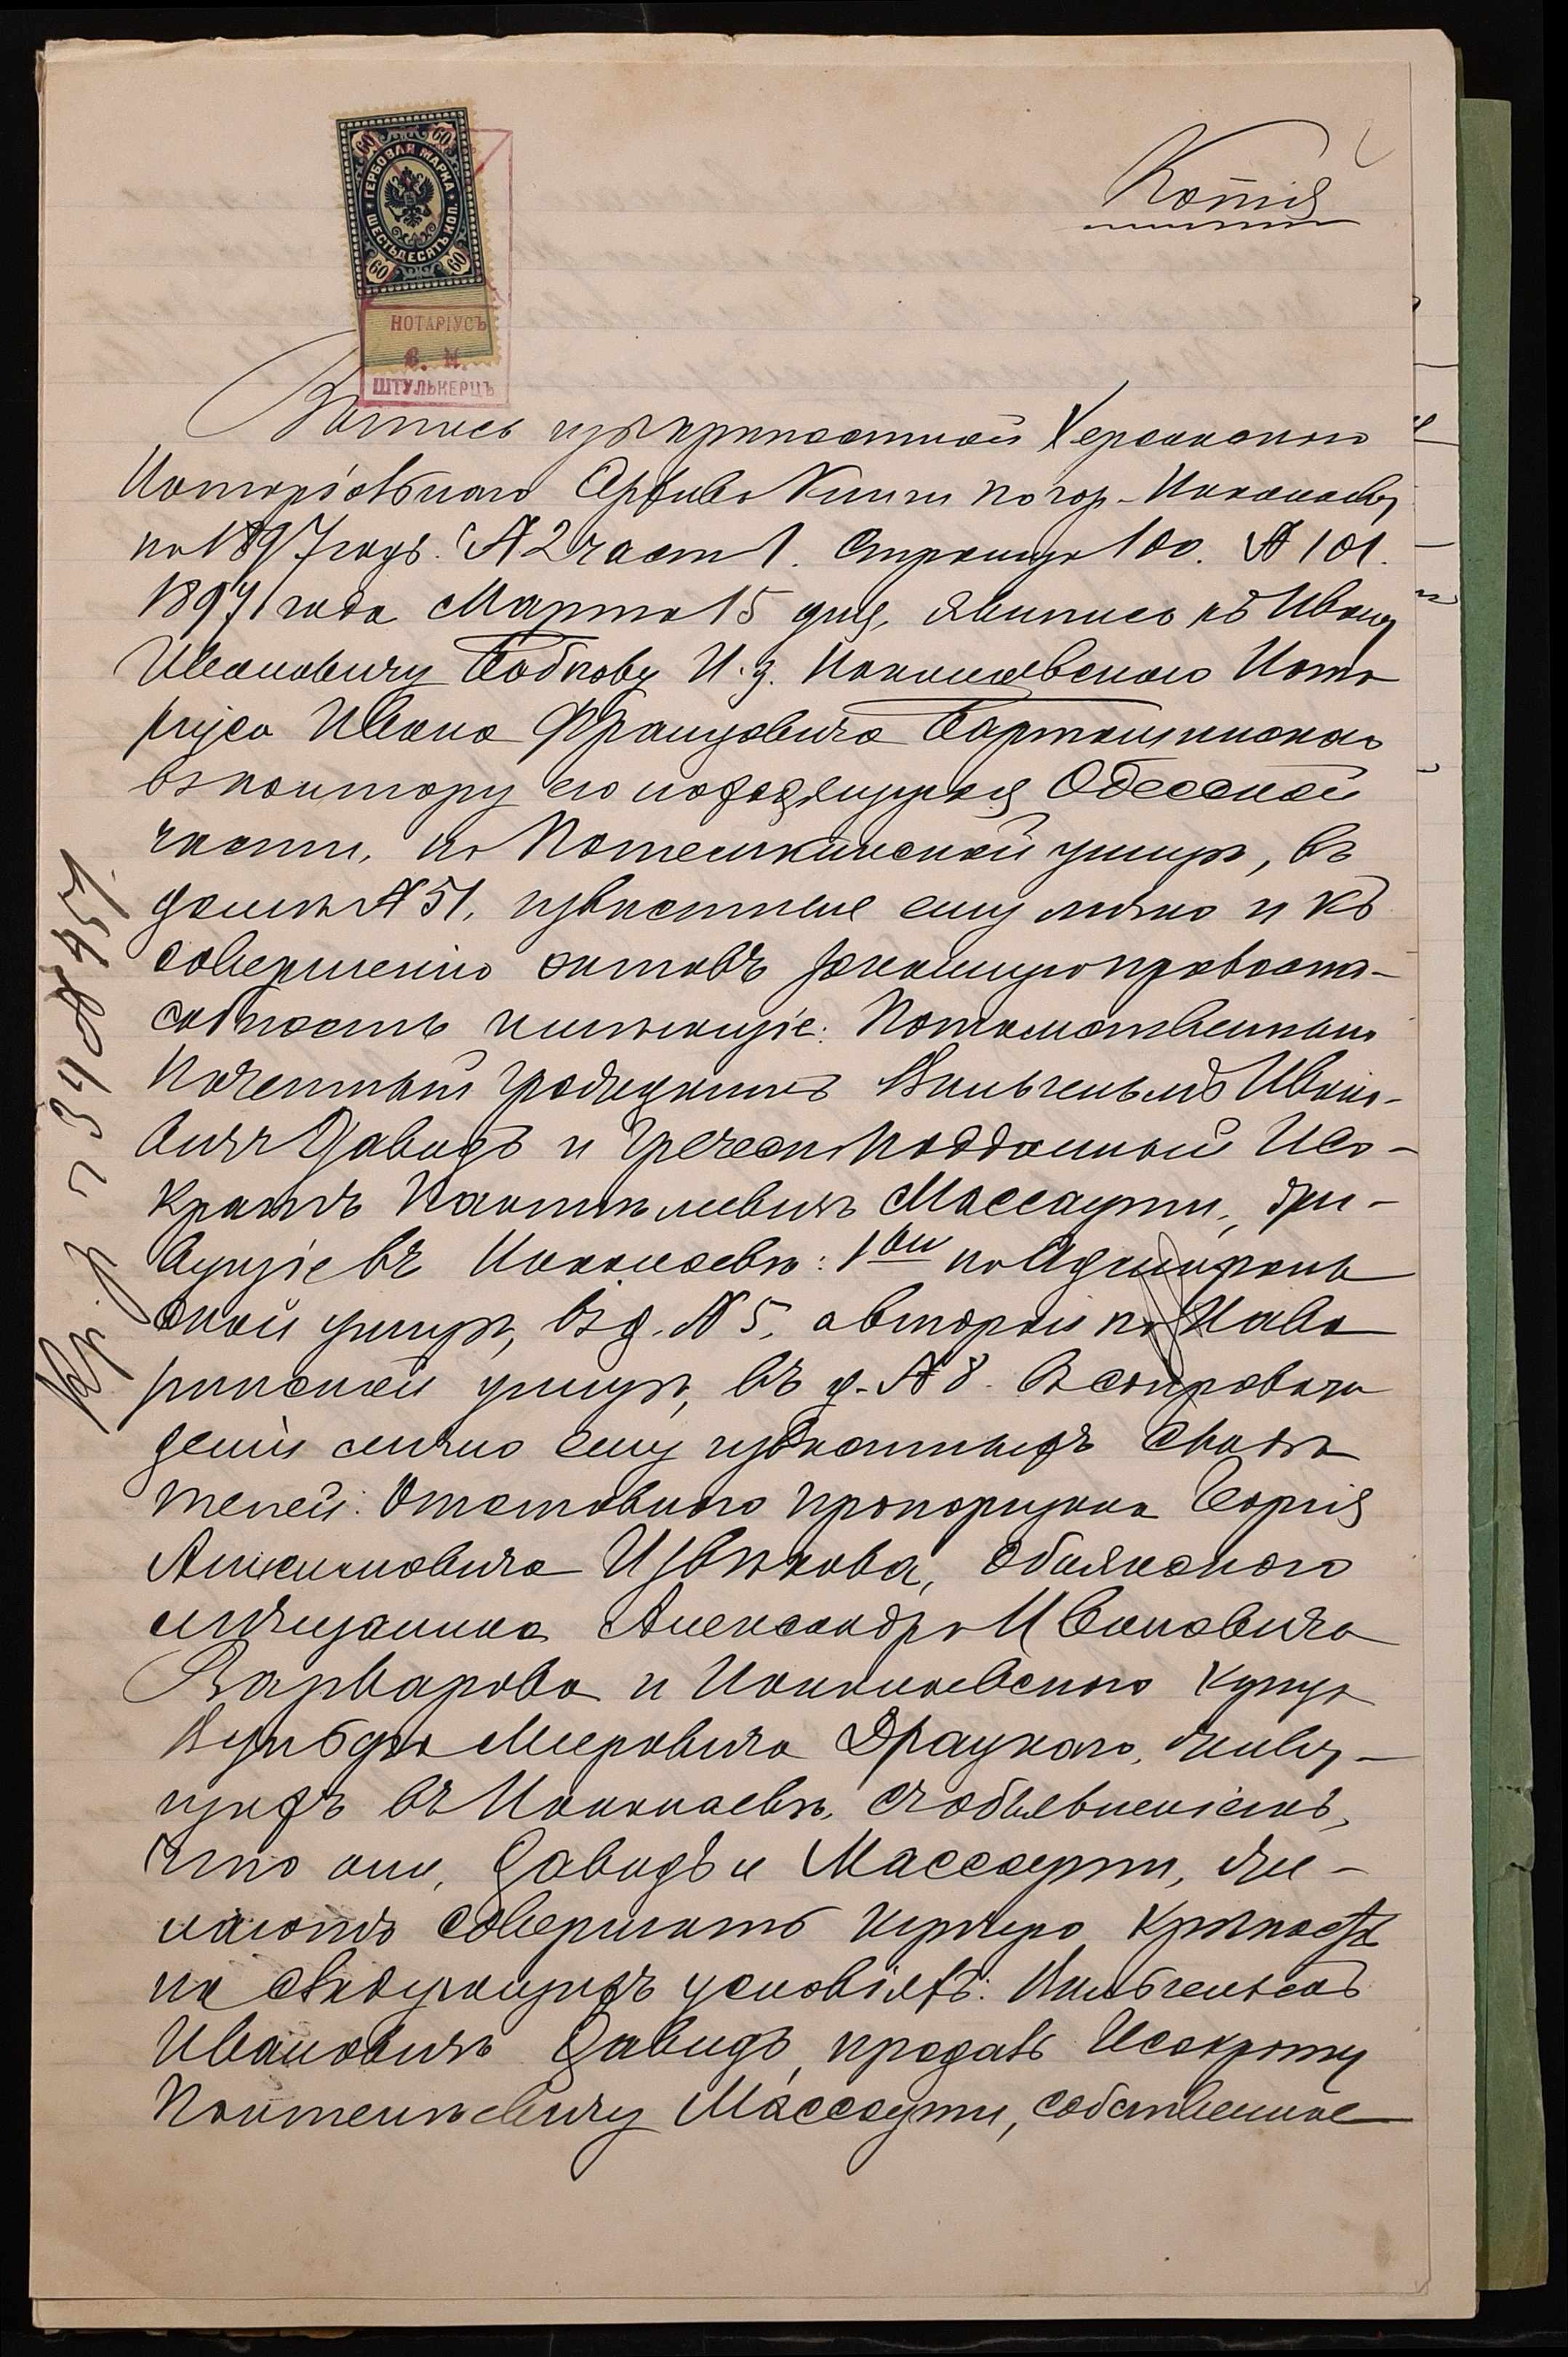 Копія
60 60
ГЕРБОВАЯ МАРКА
ШЕСТЬДЕСЯТЪ КОП.
60 60
НОТАРІУСЪ
ШТУЛЬКЕРЦЪ
Выпись изъ крѣпостной Херсонскаго
Нотаріальнаго Архива Книги по гор. Николаеву
на 1897 годъ. № 2 часть 1. Страница 100. № 101.
1897 года Марта 15 дня, явились къ Ивану
Ивановичу Бобкову И. д. Николаевскаго Нота
ріуса Ивана Францовича Бартошинскаго
въ контору его находящуюся Одесской
части, по Потемкинской улицѣ, въ
домѣ № 51, извѣстные ему лично и къ
совершенію актовъ законную правоспо-
собность имѣющіе: Потомственный
Почетный Гражданинъ Вильгельмъ Ивано-
вичъ Давидъ и Греческоподданный Исо-
кратъ Пантелѣевичъ Массаути, жи-
вущіе въ Николаевѣ: 1ый по Адмираль
ской улицѣ, въ д. № 5, а второй по Нава
ринской улицѣ, въ д. № 8. Въ сопровож
деніи лично ему извѣстныхъ свидѣ
телей: Отставного прапорщика
Извѣкова,
мѣщанина Александра Ивановича
Варварова и Николаевскаго купца
Мееровича Драцкаго, живу-
щихъ въ Николаевѣ, съ объявленіемъ,
что они, Давидъ и Массаути, же-
лаютъ совершить купчую крѣпость
на слѣдующихъ условіяхъ: Вильгельмъ
Ивановичъ Давидъ, продалъ Исократу
Пантелѣевичу Массаути, собственное